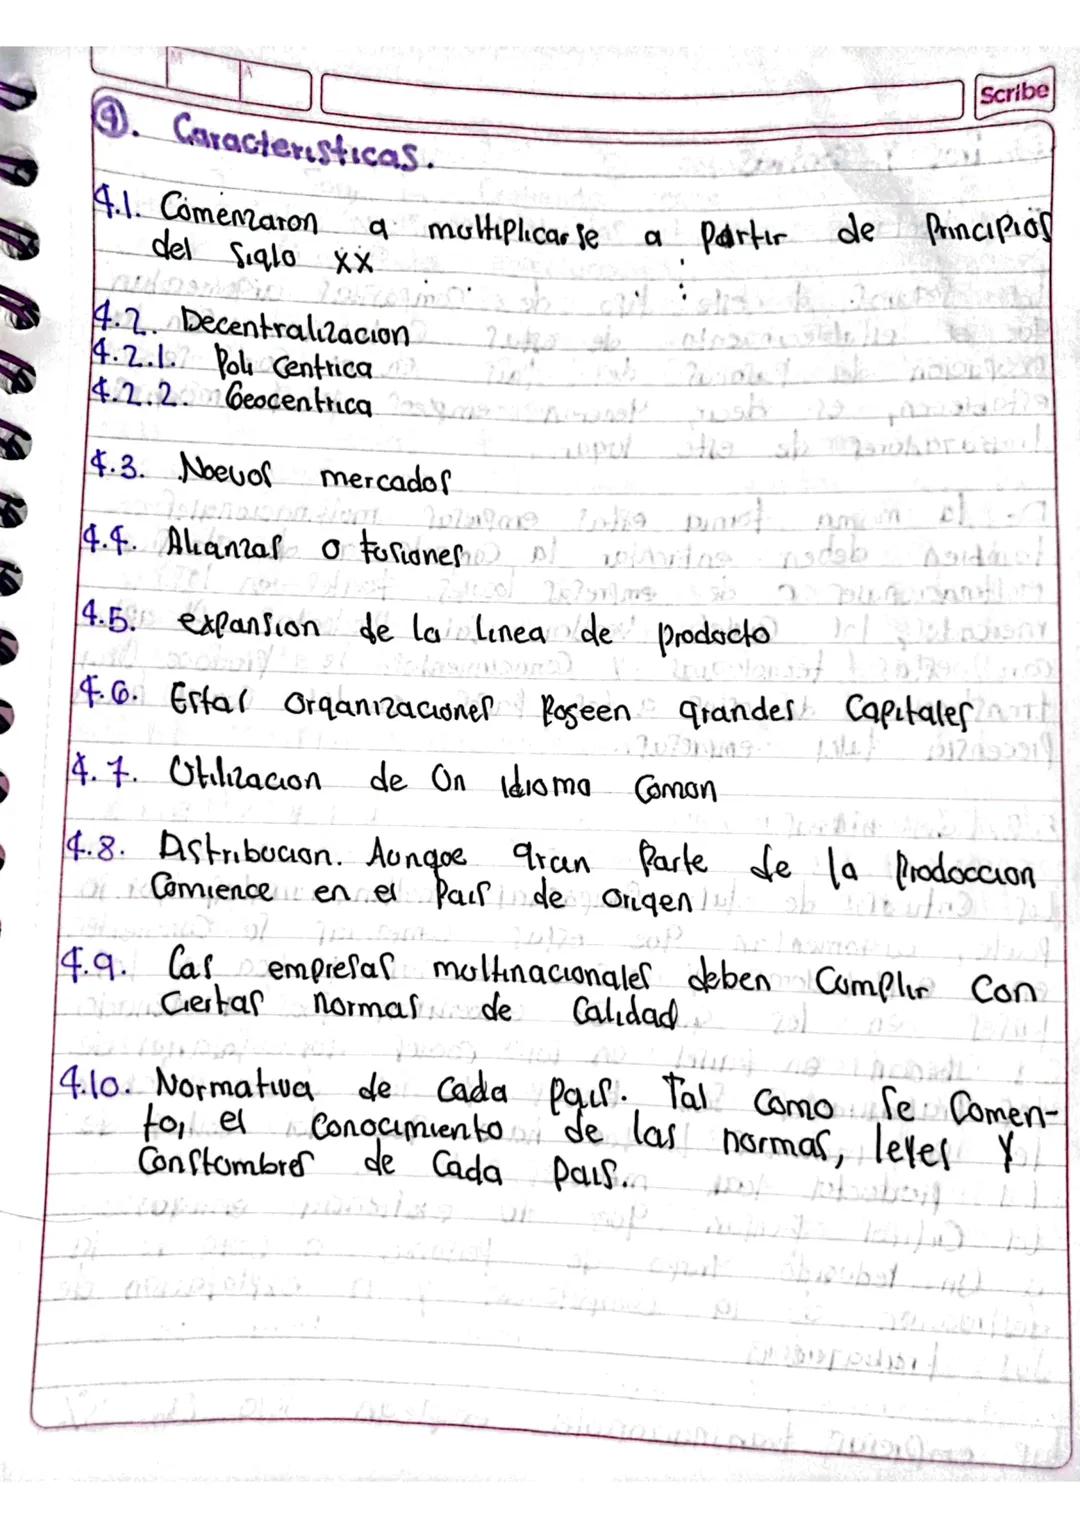 M A
Scribe
4. Caracteristicas.
4.1. Comenzaron a multiplicarse a partir de Principios
del Siglo XX
4.2. Decentralizacion
4.2.1. Poli Centrica
4.2.2. Geocentrica
4.3. Nuevos mercados
4.4. Alianzas o fusiones
4.5. expansion de la linea de producto
4.6. Estas organizaciones Poseen grandes Capitales
4.7. Utilizacion de Un idioma Comun
4.8. Distribucion. Aunque gran Parte de la Produccion
Comience en el Pais de origen
4.9. Las empresas multinacionales deben Cumplir Con
Ciertas normas de Calidad
4.10. Normativa de Cada Pais. Tal Como Se Comen-
to, el Conocimiento de las normas, leyes Y
Constumbres de Cada Pais.